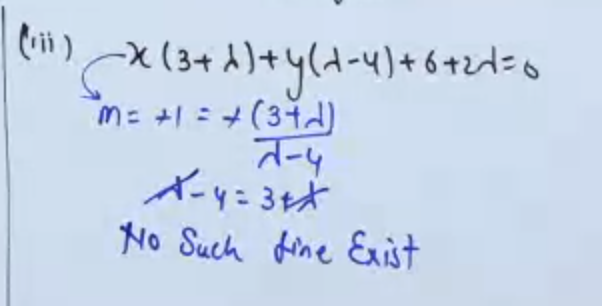 (iii) x(3+λ)+y(λ-4)+6+2λ=0
m = +1 = +(3+λ)/λ-4
λ-4 = 3+λ
No Such Line Exist